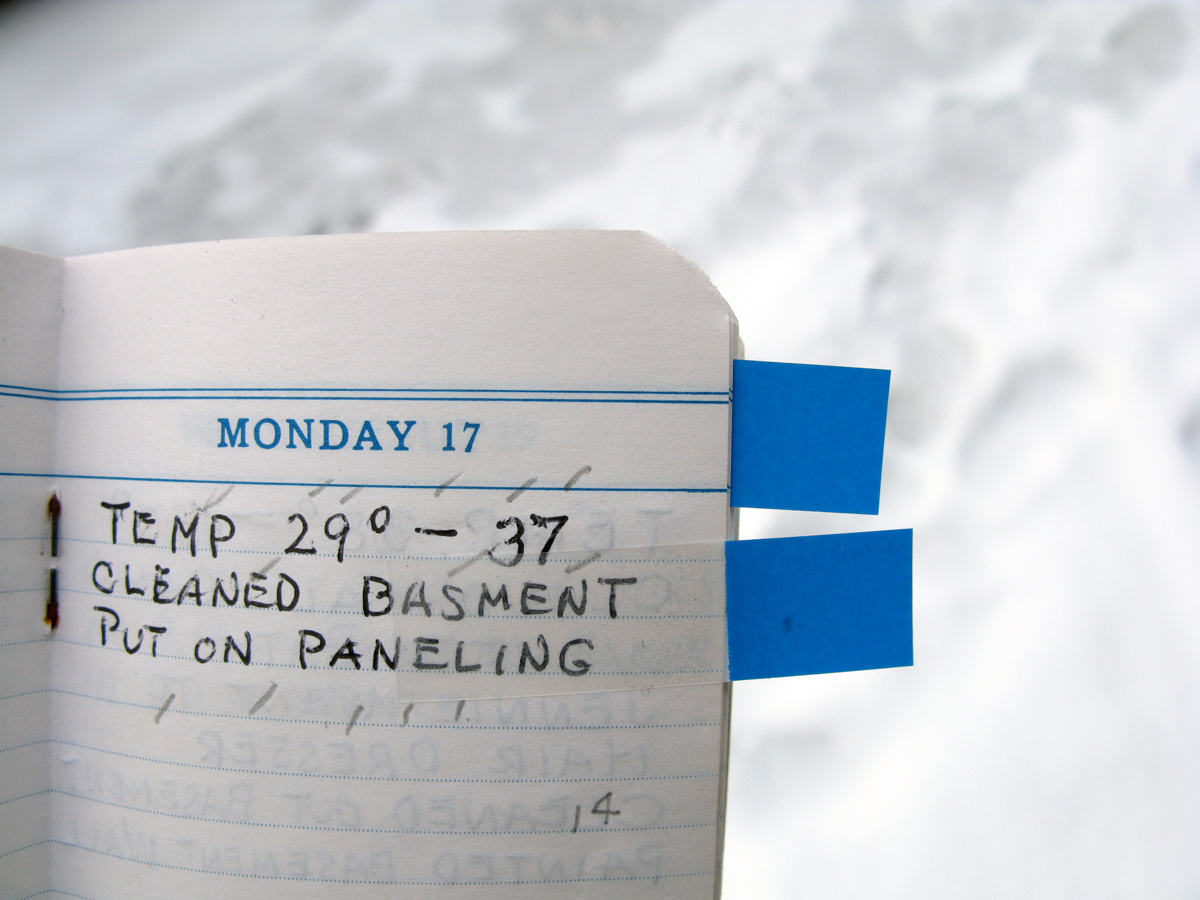 MONDAY 17
TEMP 29° – 37
CLEANED BASMENT
PUT ON PANELING
14